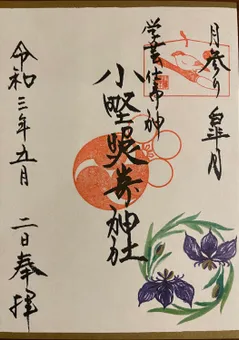 月参り 皐月
学芸仕事神
小野照崎神社
令和三年五月 二日奉拝